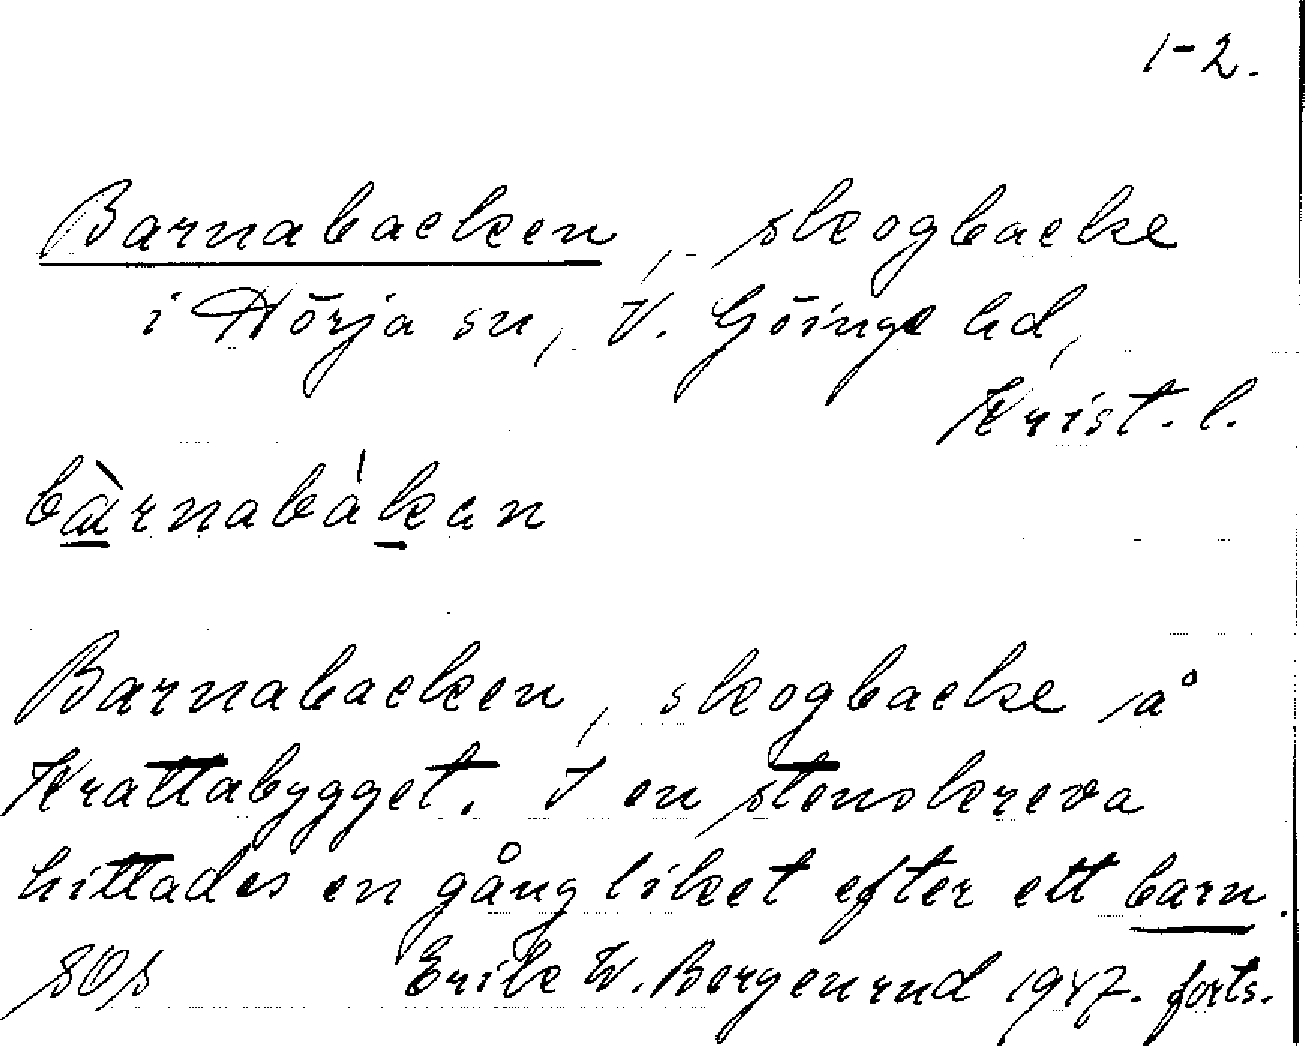 1-2.
Barnabacken, skogbacke
i Hörja sn, V. Göinge hd,
Krist. l.
bàrnabákan
Barnabacken, skogbacke å
Krattabygget. I en stenskreva
hittades en gång liket efter ett barn.
SOS Erik W. Bergenrud 1947. forts.